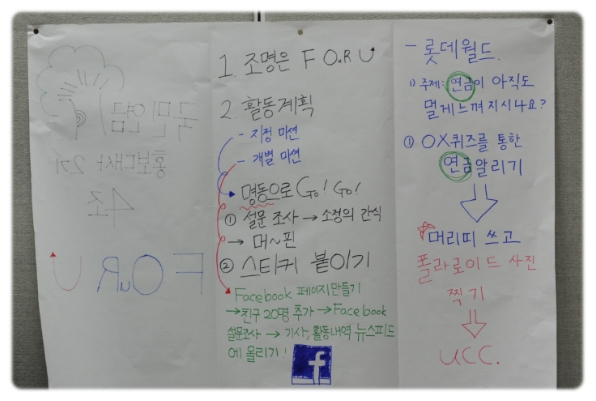 국민연금
홍보대사 2기
4조
FOuR U
1. 조명은 FOuR U
2. 활동계획
- 지정 미션
- 개별 미션
명동으로 Go! Go!
① 설문 조사 → 소정의 간식
→ 머~핀
② 스티커 붙이기
Facebook 페이지 만들기
→ 친구 20명 추가 → Facebook
설문조사 → 기사, 활동내역 뉴스피드
에 올리기!
f
- 롯데월드.
1) 주제: 연금이 아직도
멀게 느껴지시나요?
① OX퀴즈를 통한
연금알리기
머리띠 쓰고
폴라로이드 사진
찍기
UCC.